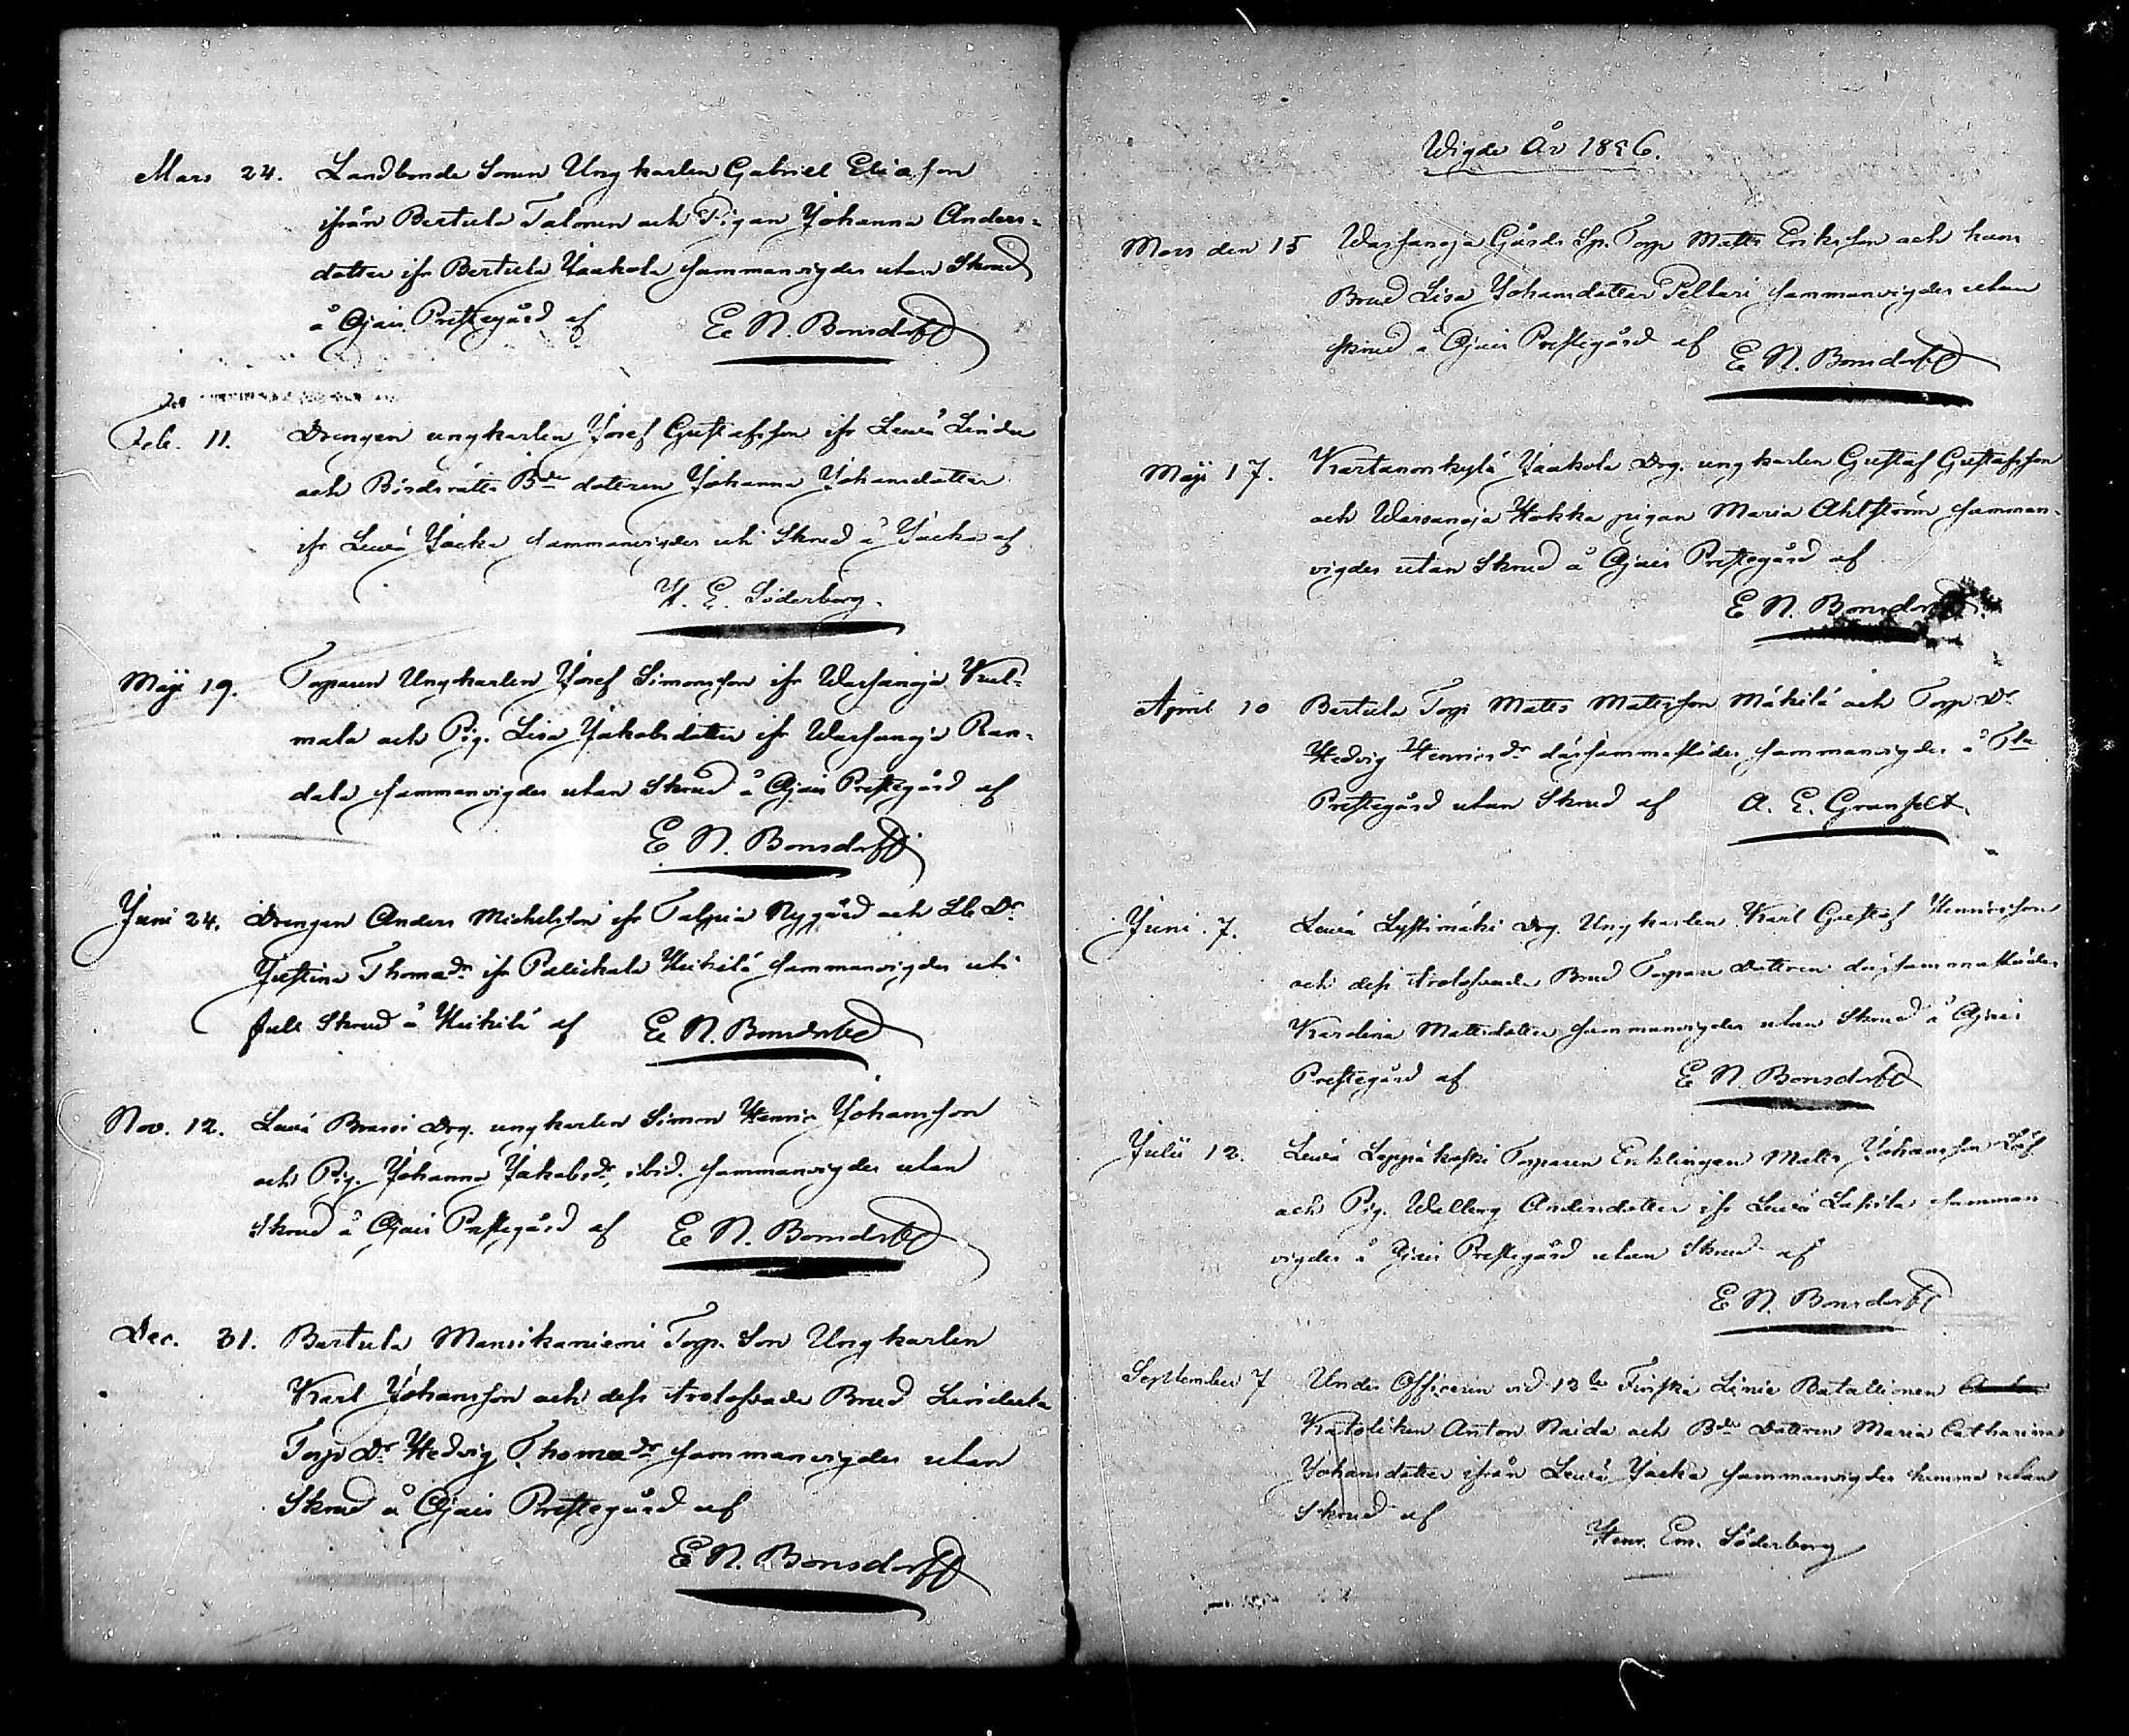 Mars 24. Landbonde Sonen Ungkarlen Gabriel Eliasson
ifrån Bertula Talonen och Pigan Johanna Anders-
dotter ifr Bertula Jaakola sammanvigdes utan Skrud
å Ojais Prestegård af E N. Bonsdorff
Feb. 11. Drengen ungkarlen Josef Gustafsson ifr Leuvä
och Bördsrätts Bde dotteren Johanna Johansdotter
ifr Jäcka sammanvigdes uti Skrud å Jäcka af
H. E. Söderborg.
Maji 19. Torparen Ungkarlen Josef Simonsson ifr Warsanoja Kul-
mala och Pig. Lisa Jakobsdotter ifr Warsanoja Ran-
dala sammanvigdes utan Skrud å Ojais Prestegård af
E N. Bonsdorff
Juni 24. Drengen Anders Michelsson ifr Talpia Nygård och Lb Dr
Justina Thomædr ifr Palickala Heikilä sammanvigdes uti
full Skrud å Heikilä af E N. Bonsdorff
Nov. 12. Drg. ungkarlen Simon Henric Johansson
och Pig. Johanna Jakobsdr, ibid. sammanvigdes utan
Skrud å Ojais Prestegård af E N. Bonsdorff
Dec. 31. Bertula Mansikaniemi Torp. Son Ungkarlen
Karl Johansson och dess trolofvade Brud
Torp Dr Hedvig Thomædr sammanvigdes utan
Skrud å Ojais Prestegård af
E N. Bonsdorff
Wigde År 1856.
Mars den 15 Warsanoja Gårds Torp Matts Eriksson och hans
Brud Lisa Johansdotter Peltari sammanvigdes utan
skrud å Ojais Prestegård af E N. Bonsdorff
Maji 17. Kartanonkylä Jaakola Drg. ungkarlen Gustaf Gustafsson
och Warsanoja Hokka pigan Maria Ahlström samman-
vigdes utan Skrud å Ojais Prestegård af
E N. Bonsdorff
April 10 Bertula Torp Matts Mattsson Mäkilä och Torp Dr
Hedvig Henricsdr därsammastädes sammanvigdes å
Prestegård utan Skrud af A. E. Granfelt.
Juni 7. Drg. Ungkarlen Karl Gustaf Henricsson
och dess trolofvade Brud Torpare Dotteren därsammastädes
Karolina Mattsdotter sammanvigdes utan Skrud å Ojais
Prestegård af E N. Bonsdorff
Julii 12. Torparen Enklingen Matts Johansson
och Pig. Walborg Andersdotter ifr samman
vigdes å Ojais Prestegård utan Skrud af
E N. Bonsdorff
September 7 Under Officeren vid 12te Finska Linie Batallionen
Katoliken Anton Naida och Bde Dotteren Maria Catharina
Johansdotter ifrån Jäcka sammanvigdes hemma utan
Skrud af
Henr. Em. Söderborg